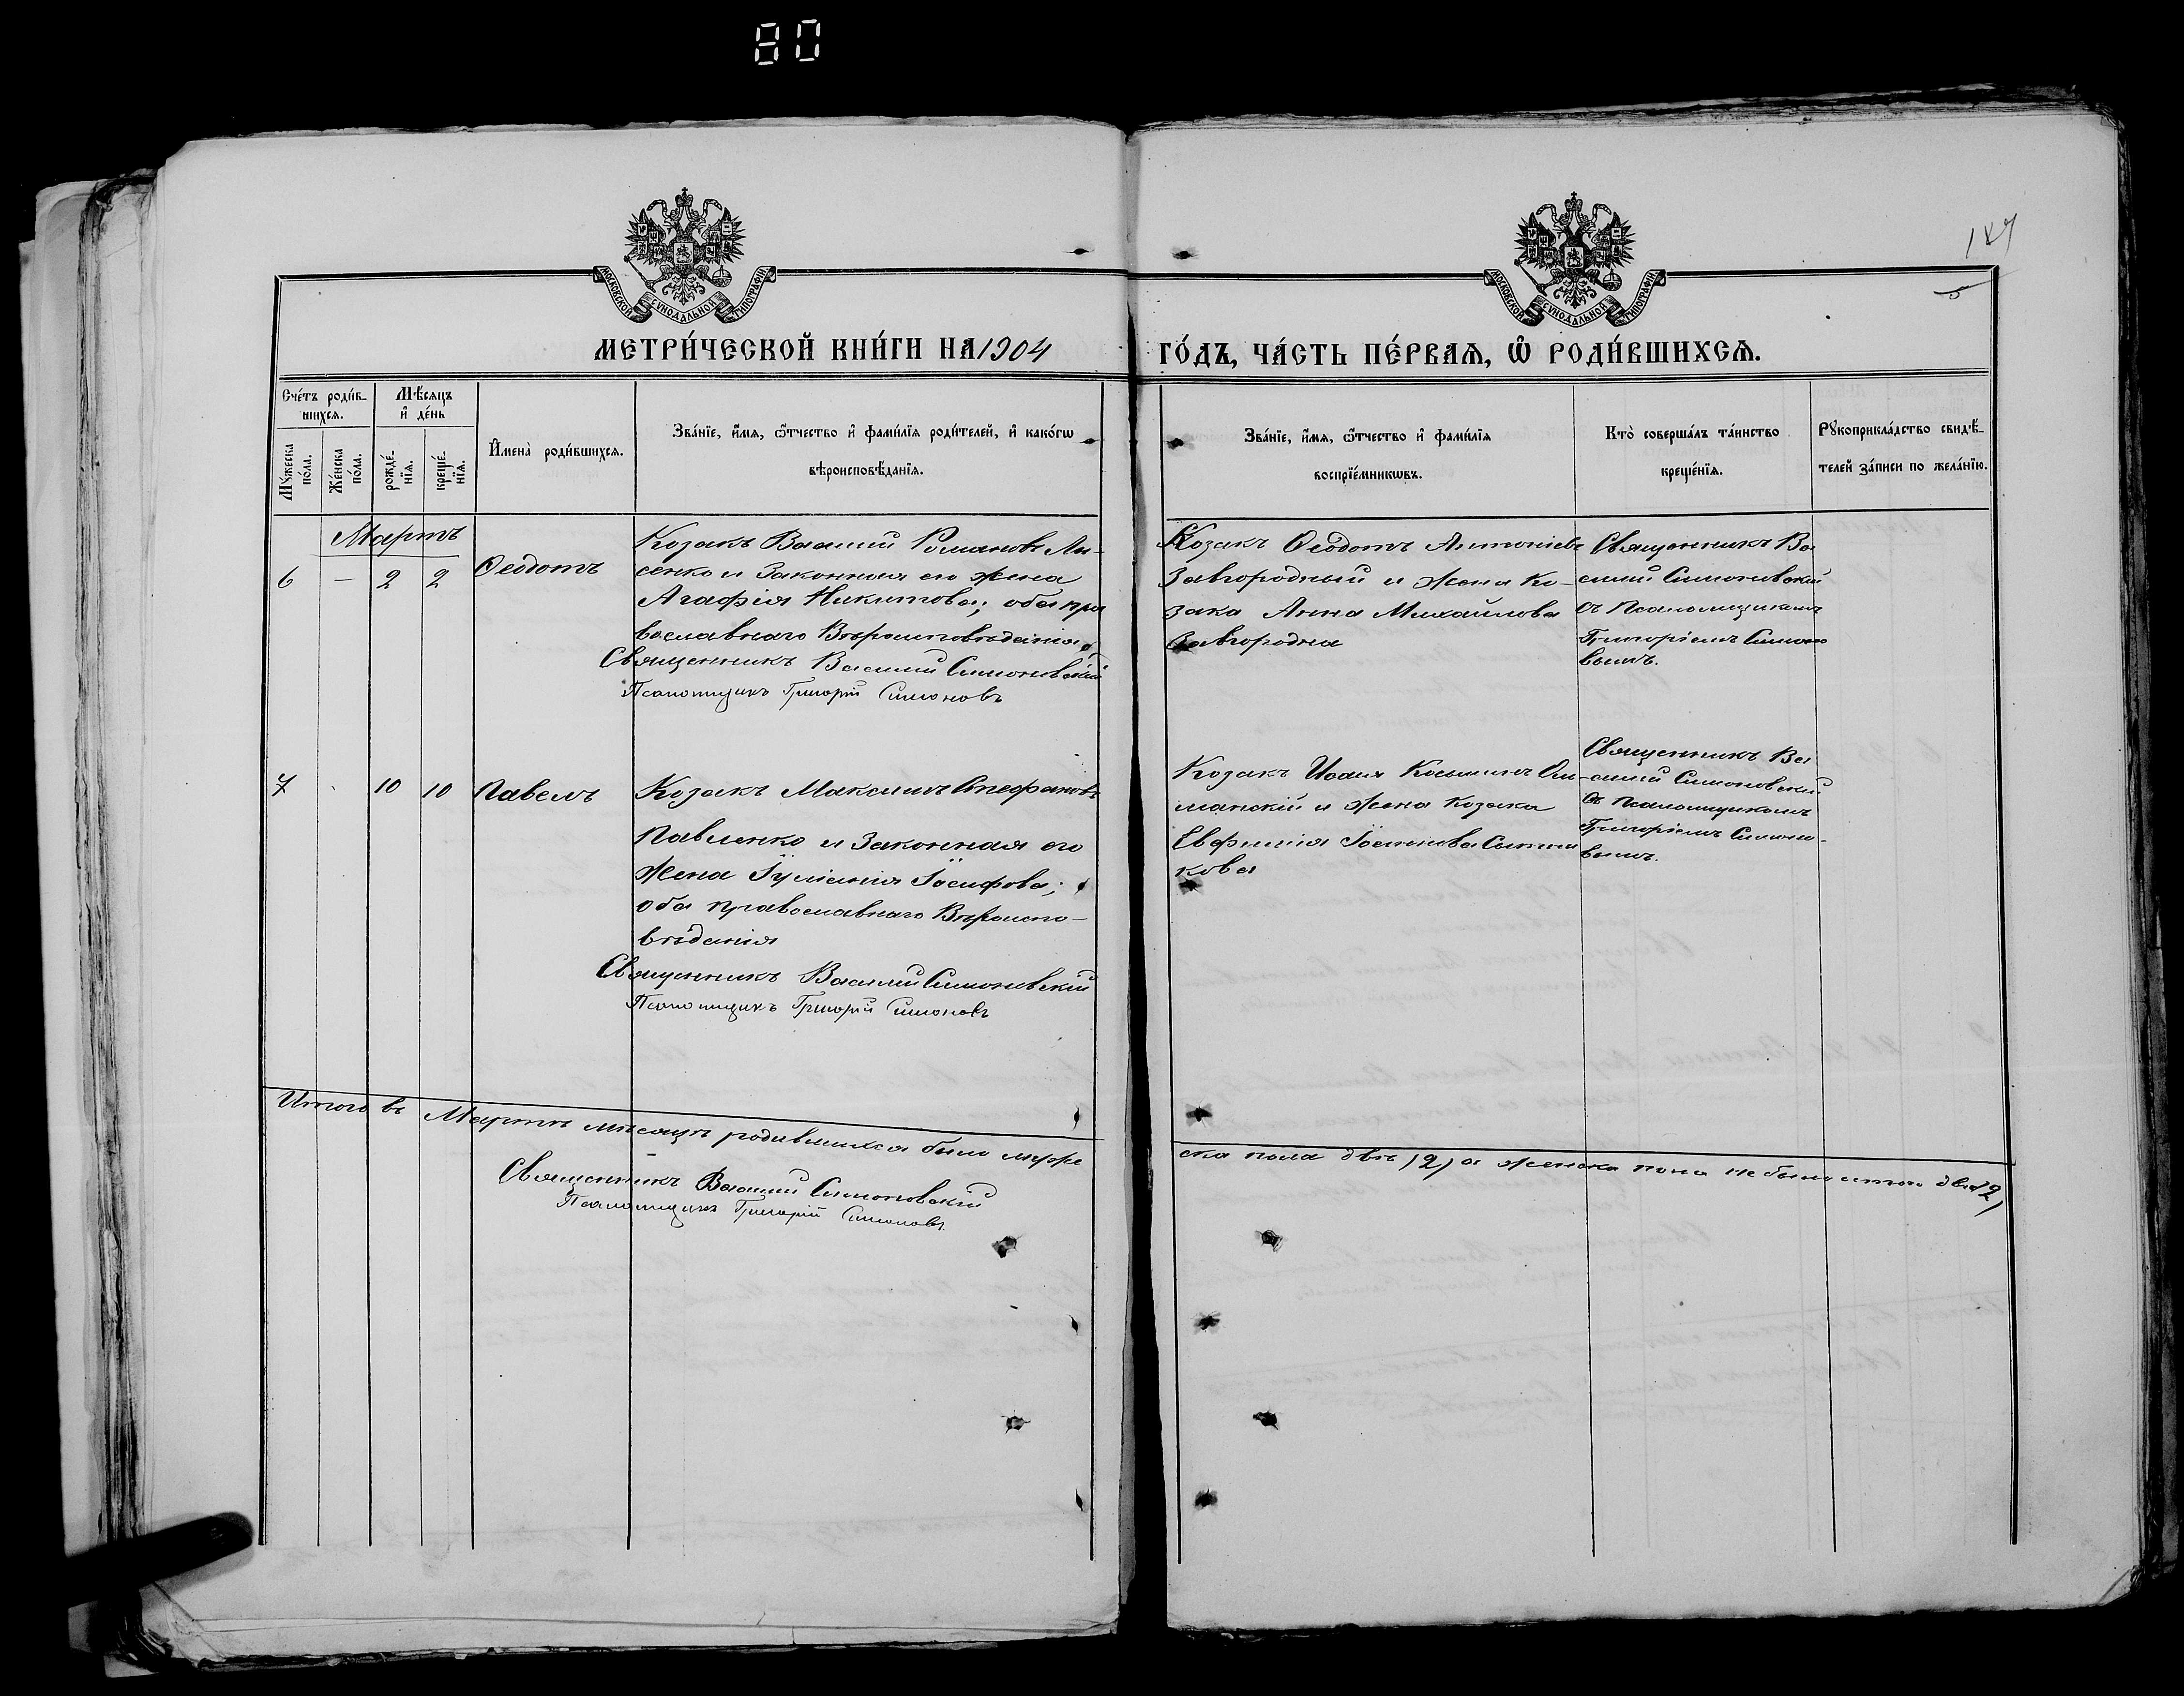 80
187
5
МОСКОВСКОЙ СѴНОДАЛЬНОЙ ТИПОГРАФІИ
МОСКОВСКОЙ СѴНОДАЛЬНОЙ ТИПОГРАФІИ
МЕТРИ́ЧЕСКОЙ КНИ́ГИ НА 1904
ГО́ДЪ, ЧА́СТЬ ПЕ́РВАѦ, Ѽ РОДИ́ВШИХСѦ.
Сче́тъ роди́в-
шихсѧ.
Мѣ́сѧцъ
и҆ де́нь
Мꙋ́жеска
по́ла.
Же́нска
по́ла.
рожде́-
нїѧ.
креще́-
нїѧ.
И҆мена̀ роди́вшихсѧ.
Зва́нїе, и҆́мѧ, ѻ҆́тчество и҆ фами́лїѧ роди́телей, и҆ како́гѡ
вѣроисповѣ́данїѧ.
Зва́нїе, и҆́мѧ, ѻ҆́тчество и҆ фами́лїѧ
воспрїе́мникѡвъ.
Кто̀ соверша́лъ та́инство
креще́нїѧ.
Рꙋкоприкла́дство свидѣ́-
телей за́писи по жела́нїю.
Мартъ
6 — 2 2 Ѳеодотъ
Козакъ Василій Романовъ Ли-
сенко и законная его жена
Агафія Никитова; оба пра
вославнаго Вѣроисповѣданія
Священникъ Василий Симоновский
Псаломщикъ Григорій Симоновъ
Козакъ Ѳеодотъ Антоніевъ
Завгородный и жена ко-
зака Анна Михайлова
Завгородна
Священникъ Ва
силий Симоновский
съ Псаломщикомъ
Григоріемъ Симоно
вымъ.
7 10 10 Павелъ
Козакъ Максимъ Стефановъ
Павленко и законная его
жена Іуліанія Іосифова;
оба православнаго Вѣроиспо-
вѣданія
Священникъ Василий Симоновский
Псаломщикъ Григорій Симоновъ
Козакъ Исаія Косьминъ
и жена козака
Евфимія
кова
Священникъ Ва
силий Симоновский
съ Псаломщикомъ
Григоріемъ Симоно-
вымъ.
Итого въ Мартѣ мѣсяцѣ родившихся было муже
ска пола двѣ (2) а женска пола не было итого два (2)
Священникъ Василий Симоновский
Псаломщикъ Григорій Симоновъ.